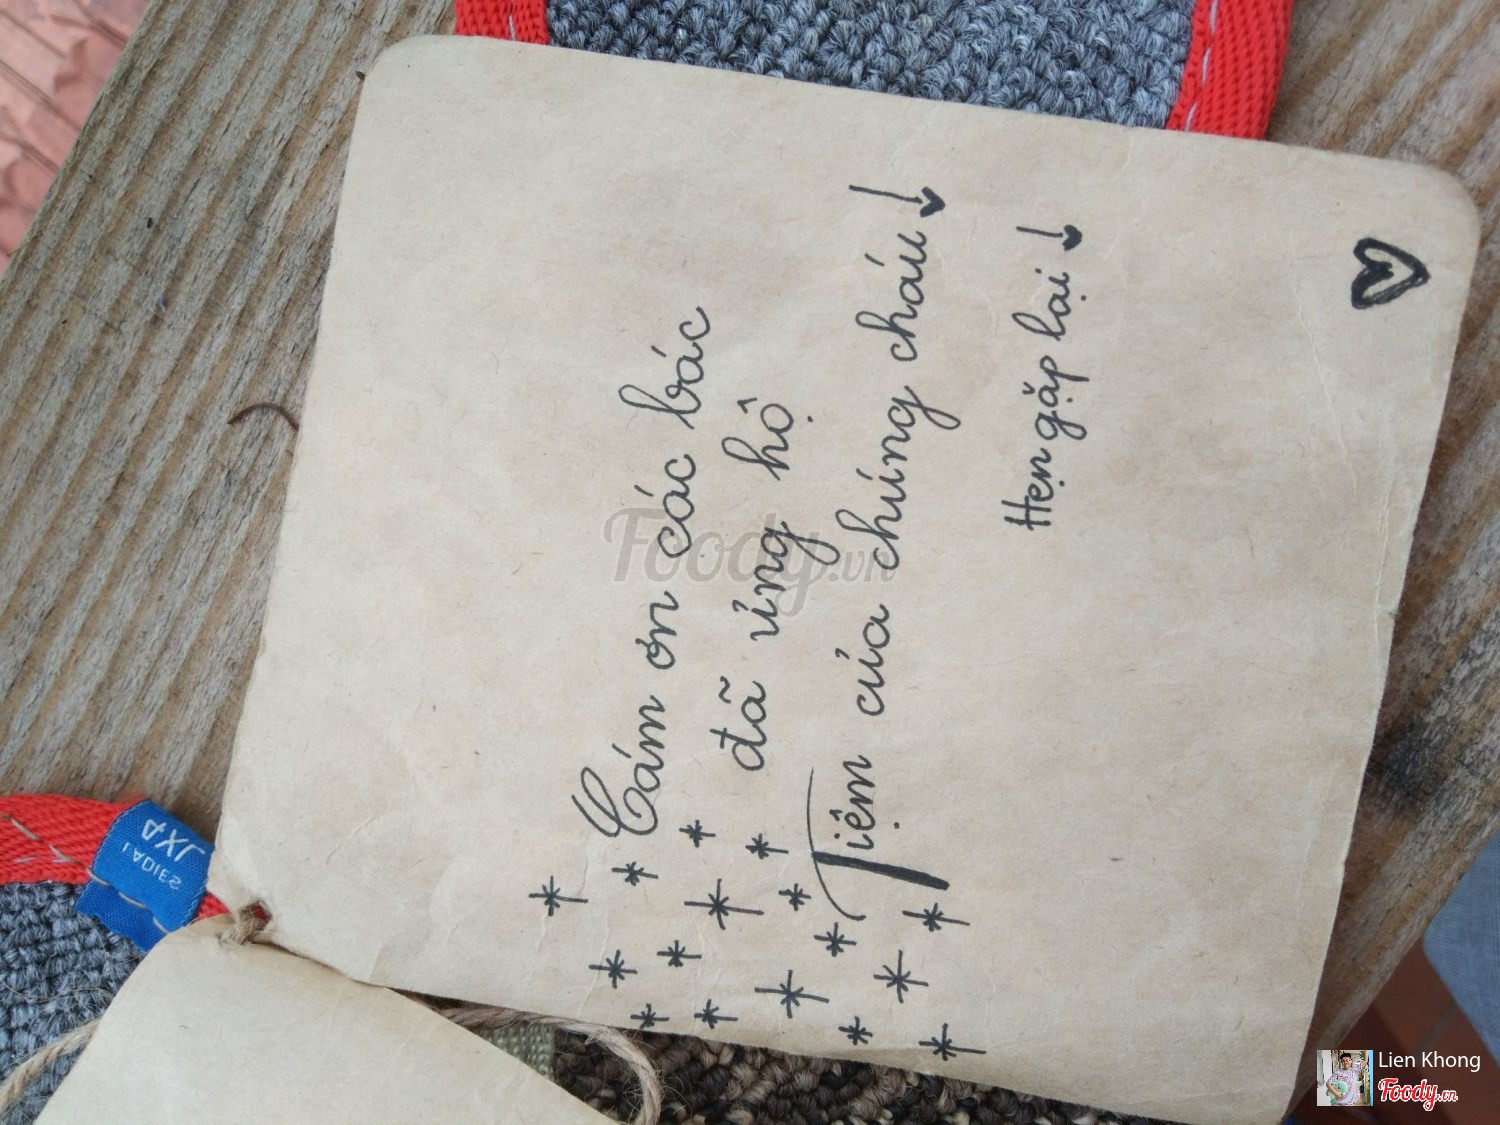 Cám ơn các bác
đã ủng hộ
Tiệm của chúng cháu
Hẹn gặp lại
Foody.vn
Lien Khong
Foody.vn